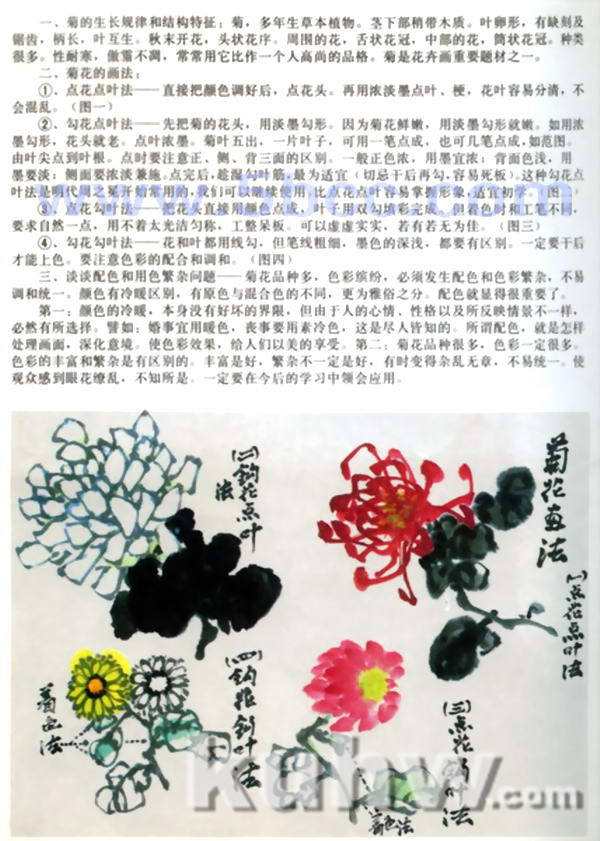 一、菊的生长规律和结构特征：菊，多年生草本植物。茎下部稍带木质。叶卵形，有缺刻及
锯齿，柄长，叶互生。秋末开花，头状花序。周围的花，舌状花冠，中部的花，筒状花冠。种类
很多。性耐寒，傲霜不凋，常常用它比作一个人高尚的品格。菊是花卉画重要题材之一。
二、菊花的画法：
①、点花点叶法——直接把颜色调好后，点花头。再用浓淡墨点叶、梗，花叶容易分清，不
会混乱。（图一）
②、勾花点叶法——先把菊的花头，用淡墨勾形。因为菊花鲜嫩，用淡墨勾形就嫩。如用浓
墨勾形，花头就老。点叶浓墨。菊叶五出，一片叶子，可用一笔点成，也可几笔点成，如范图。
由叶尖点到叶根。点时要注意正、侧、背三面的区别。一般正色浓，用墨宜浓；背面色浅，用
墨要淡；侧面要浓淡兼施。点完后，趁湿勾叶筋，最为适宜（切忌干后再勾，容易死板）。这种勾花点
叶法是明代周之冕开始常用的，我们可以继续使用，比点花点叶容易掌握形象，适宜初学。（图二）
③、点花勾叶法——把花头直接用颜色点成，叶子用双勾填彩完成。但着色时和工笔不同，
要求自然一点，用不着太光洁匀称，工整呆板。可以虚虚实实，若有若无为佳。（图三）
④、勾花勾叶法——花和叶都用线勾，但笔线粗细，墨色的深浅，都要有区别。一定要干后
才能上色。要注意色彩的配合和调和。（图四）
三、谈谈配色和用色繁杂问题——菊花品种多，色彩缤纷，必须发生配色和色彩繁杂，不易
调和统一。颜色有冷暖区别，有原色与混合色的不同，更为雅俗之分。配色就显得很重要了。
第一：颜色的冷暖，本身没有好坏的界限，但由于人的心情、性格以及所反映情景不一样，
必然有所选择。譬如：婚事宜用暖色，丧事要用素冷色，这是尽人皆知的。所谓配色，就是怎样
处理画面，深化意境。使色彩效果，给人们以美的享受。第二：菊花品种很多，色彩一定很多。
色彩的丰富和繁杂是有区别的。丰富是好，繁杂不一定是好，有时变得杂乱无章，不易统一。使
观众感到眼花缭乱，不知所是。一定要在今后的学习中领会应用。
菊花画法
(一)点花点叶法
(二)钩花点叶
法
(三)点花钩叶法
着色法
(四)钩花钩叶法
着色法
kuhw.com